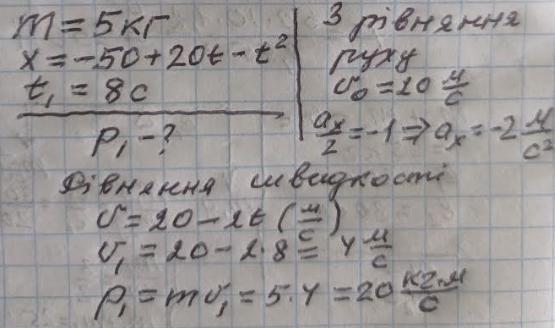 m = 5 кг
x = -50 + 20t - t²
t₁ = 8 с
p₁ - ?
З рівняння
руху
v₀ = 20 м/с
aₓ/2 = -1 ⇒ aₓ = -2 м/с²
Рівняння швидкості
v = 20 - 2t (м/с)
v₁ = 20 - 2·8 = 4 м/с
p₁ = mv₁ = 5·4 = 20 кг·м/с